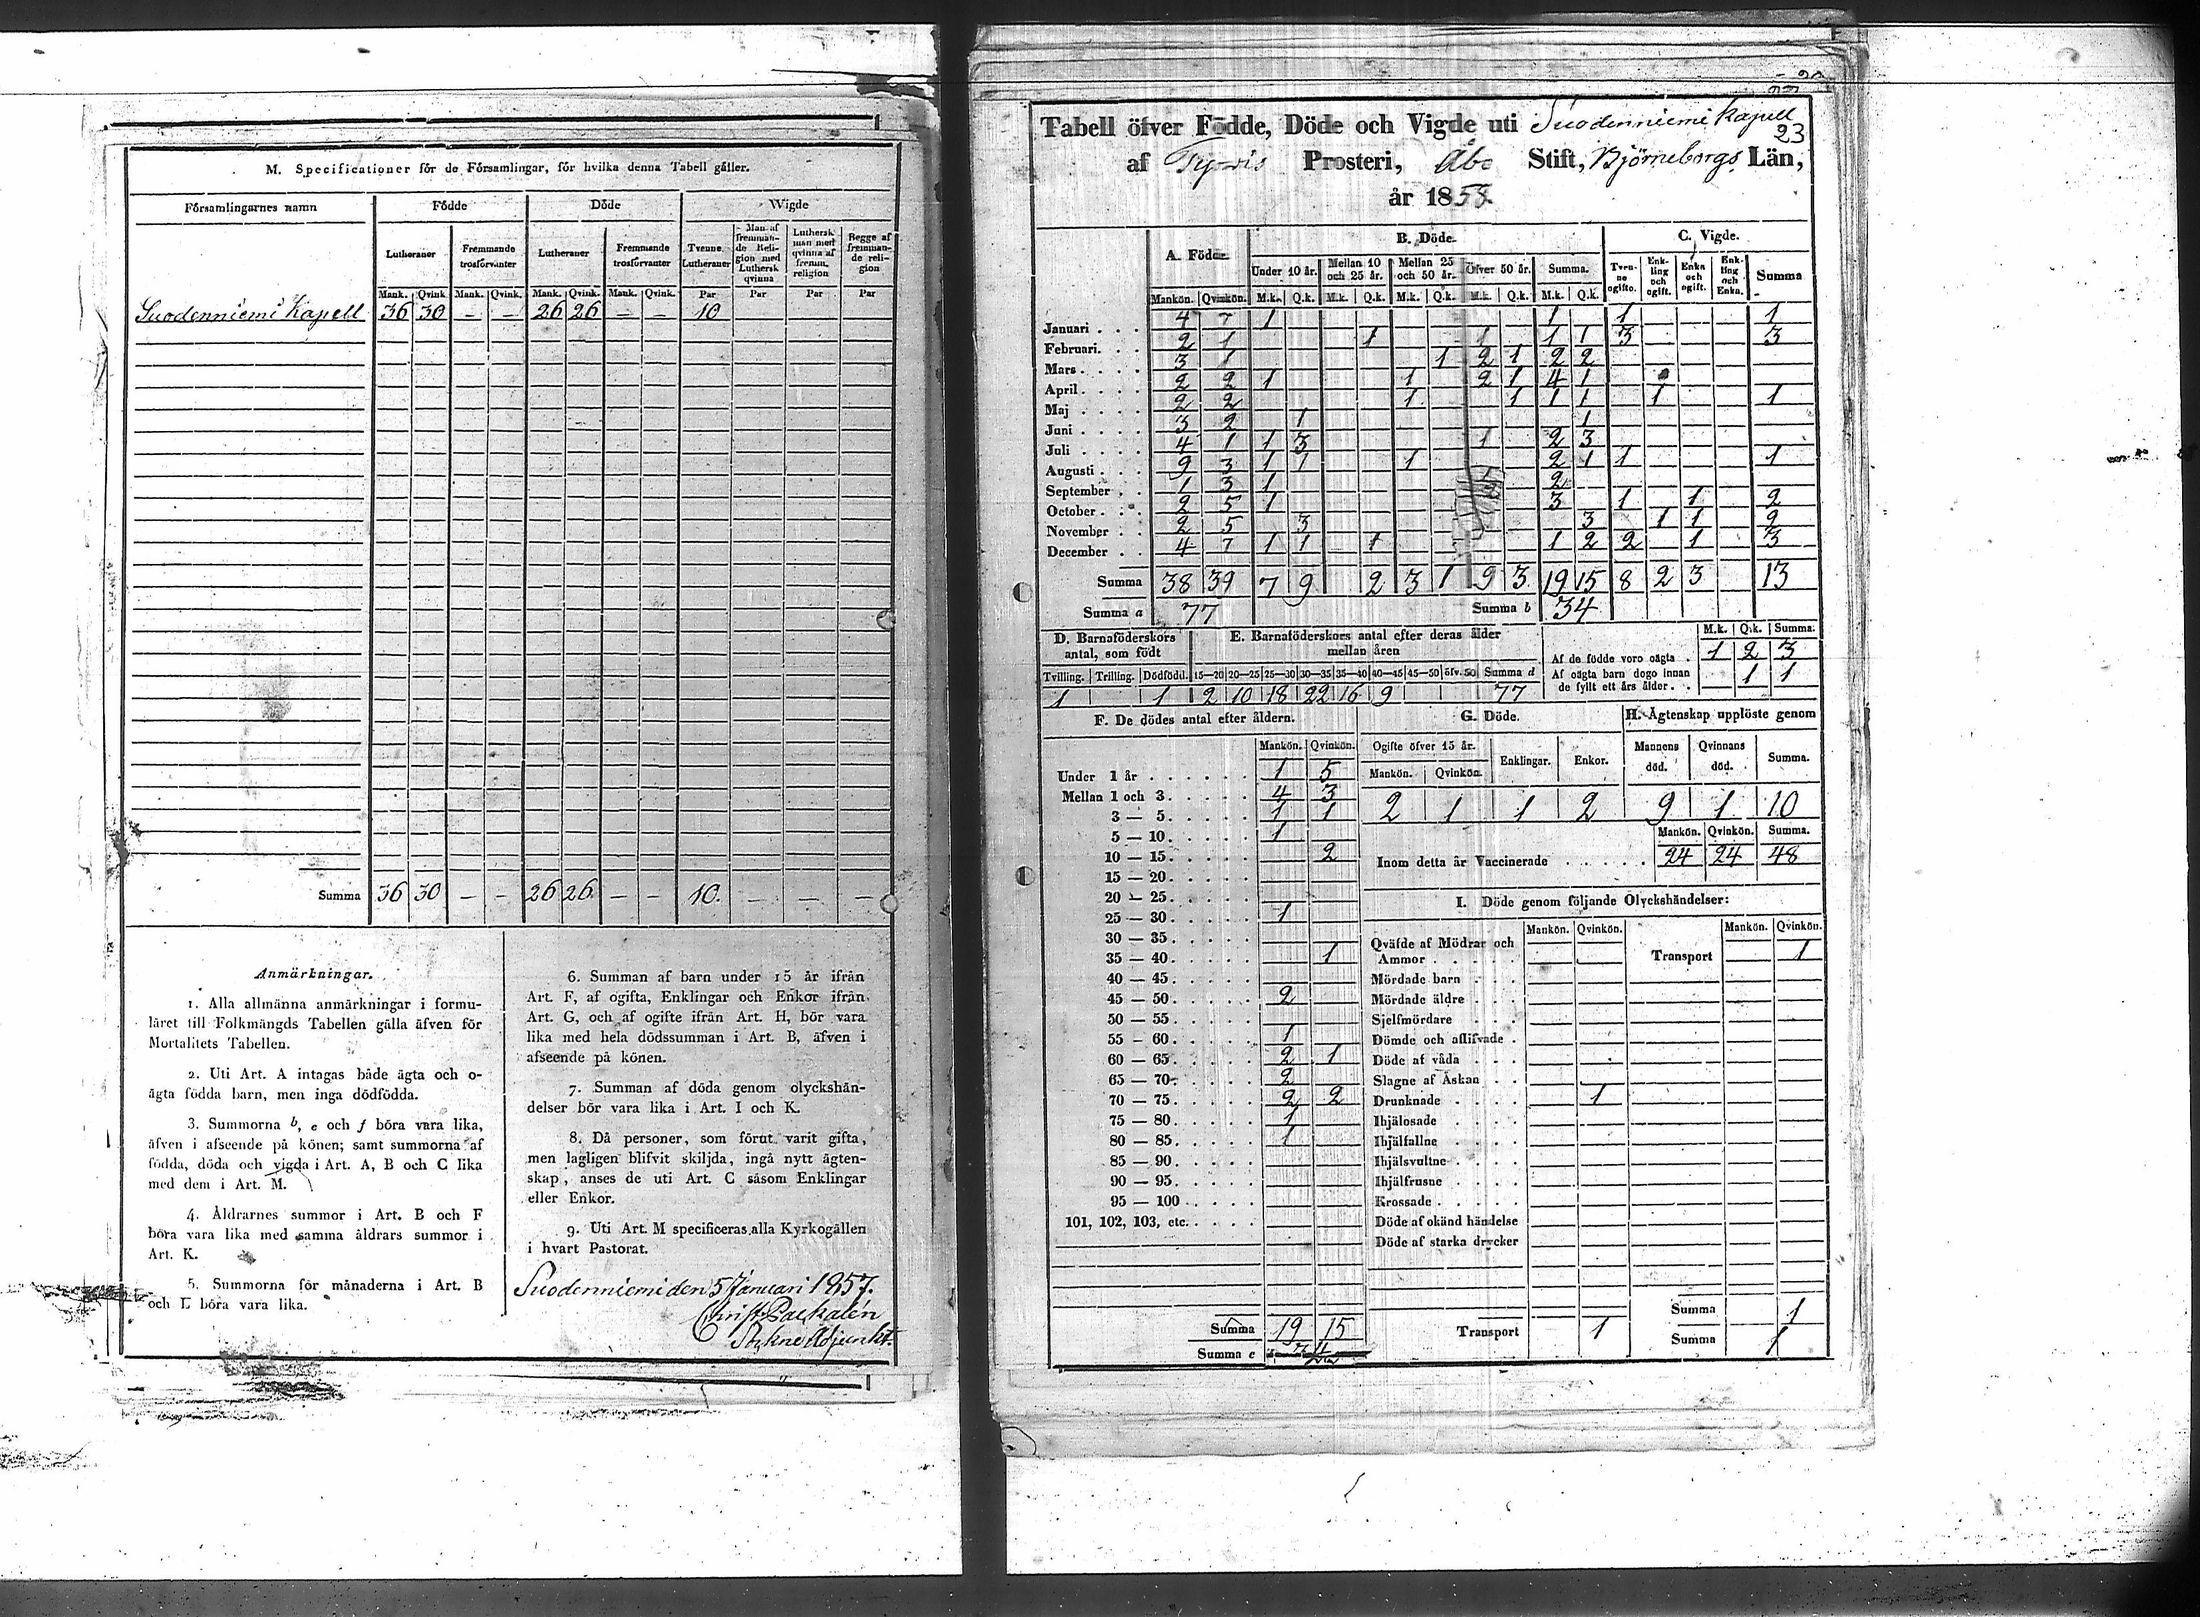 M. Specificationer för de Församlingar, för hvilka denna Tabell gäller.
Församlingarnes namn | Födde | Döde | Wigde
Lutheraner | Fremmande trosförvanter | Lutheraner | Fremmande trosförvanter | Tvenne Lutheraner | Man af fremmande Religion med Luthersk qvinna | Luthersk man med qvinna af fremm. religion | Begge af fremmande religion
Mank. | Qvink. | Mank. | Qvink. | Mank. | Qvink. | Mank. | Qvink. | Par | Par | Par | Par
Suodenniemi Kapell | 36 | 30 | – | – | 26 | 26 | – | – | 10
Summa | 36 | 30 | – | – | 26 | 26 | – | – | 10. | – | – | –
Anmärkningar.
1. Alla allmänna anmärkningar i formu-
läret till Folkmängds Tabellen gälla äfven för
Mortalitets Tabellen.
2. Uti Art. A intagas både ägta och o-
ägta födda barn, men inga dödfödda.
3. Summorna b, c och f böra vara lika,
äfven i afseende på könen; samt summorna af
födda, döda och vigda i Art. A, B och C lika
med dem i Art. M.
4. Åldrarnes summor i Art. B och F
böra vara lika med samma åldrars summor i
Art. K.
5. Summorna för månaderna i Art. B
och L böra vara lika.
6. Summan af barn under 15 år ifrån
Art. F, af ogifta, Enklingar och Enkor ifrån
Art. G, och af ogifte ifrån Art. H, bör vara
lika med hela dödssumman i Art. B, äfven i
afseende på könen.
7. Summan af döda genom olyckshän-
delser bör vara lika i Art. I och K.
8. Då personer, som förut varit gifta,
men lagligen blifvit skiljda, ingå nytt ägten-
skap, anses de uti Art. C såsom Enklingar
eller Enkor.
9. Uti Art. M specificeras alla Kyrkogällen
i hvart Pastorat.
Suodenniemi den 5 Januari 1857.
Christ. Packalén
Sokne Adjunkt.
Tabell öfver Födde, Döde och Vigde uti Suodenniemi Kapell
23
af Tyrvis Prosteri, Åbo Stift, Björneborgs Län,
år 1858.
A. Födde. | B. Döde. | C. Vigde.
Under 10 år. | Mellan 10 och 25 år. | Mellan 25 och 50 år. | Öfver 50 år. | Summa. | Tvenne ogifte. | Enkling och ogift. | Enka och ogift. | Enkling och Enka. | Summa
Mankön. | Qvinkön. | M.k. | Q.k. | M.k. | Q.k. | M.k. | Q.k. | M.k. | Q.k. | M.k. | Q.k.
Januari . . . 4 7 1 1 1 1
Februari. . . 2 1 1 1 1 1 3 3
Mars . . . . 3 1 1 2 1 2 2
April . . . . 2 2 1 1 2 1 4 1
Maj . . . . 2 2 1 1 1 1 1 1
Juni . . . . 3 2 1 1
Juli . . . . 4 1 1 3 1 2 3
Augusti . . . 9 3 1 1 1 2 1 1 1
September . . 1 3 1 2
October . . . 2 5 1 3 1 1 2
November . . 2 5 3 3 1 1 2
December . . 4 7 1 1 1 1 2 2 1 3
Summa 38 39 7 9 2 3 1 9 3 19 15 8 2 3 13
Summa a 77 Summa b 34
D. Barnaföderskors antal, som födt
E. Barnaföderskors antal efter deras ålder mellan åren
Tvilling. | Trilling. | Dödfödd. | 15—20 | 20—25 | 25—30 | 30—35 | 35—40 | 40—45 | 45—50 | öfv. 50 | Summa d
1 1 2 10 18 22 16 9 77
M.k. | Q.k. | Summa.
Af de födde voro oägta . 1 2 3
Af oägta barn dogo innan de fyllt ett års ålder . . 1 1
F. De dödes antal efter åldern.
Mankön. | Qvinkön.
Under 1 år . . . . . . 1 5
Mellan 1 och 3 . . . . . 4 3
3 — 5 . . . . . 1 1
5 — 10 . . . . . 1
10 — 15 . . . . . 2
15 — 20 . . . . .
20 — 25 . . . . .
25 — 30 . . . . . 1
30 — 35 . . . . .
35 — 40 . . . . . 1
40 — 45 . . . . .
45 — 50 . . . . . 2
50 — 55 . . . . .
55 — 60 . . . . . 1
60 — 65 . . . . . 2 1
65 — 70 . . . . . 2
70 — 75 . . . . . 2 2
75 — 80 . . . . . 1
80 — 85 . . . . . 1
85 — 90 . . . . .
90 — 95 . . . . .
95 — 100 . . . . .
101, 102, 103, etc. . . . .
Summa 19 15
Summa c 34
G. Döde.
Ogifte öfver 15 år. | Enklingar. | Enkor.
Mankön. | Qvinkön.
2 1 1 2
H. Ägtenskap upplöste genom
Mannens död. | Qvinnans död. | Summa.
9 1 10
Mankön. | Qvinkön. | Summa.
Inom detta år Vaccinerade . . . . . 24 24 48
I. Döde genom följande Olyckshändelser:
Mankön. | Qvinkön. | Mankön. | Qvinkön.
Qväfde af Mödrar och Ammor . . . . . | Transport 1
Mördade barn . . .
Mördade äldre . . .
Sjelfmördare . . .
Dömde och aflifvade .
Döde af våda . . .
Slagne af Åskan . .
Drunknade . . . . 1
Ihjälosade . . . .
Ihjälfallne . . . .
Ihjälsvultne . . . .
Ihjälfrusne . . . .
Krossade . . . . .
Döde af okänd händelse
Döde af starka drycker
Summa 1
Transport 1
Summa 1